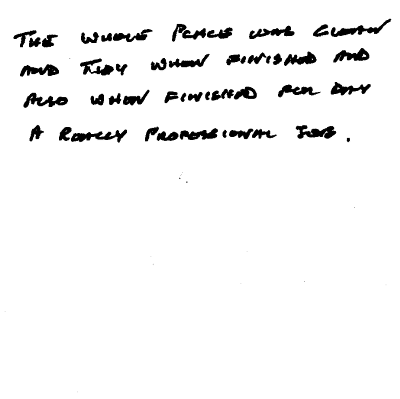 THE WHOLE PLACE WAS CLEAN
AND TIDY WHEN FINISHED AND
ALSO WHEN FINISHED FOR DAY
A REALLY PROFESSIONAL JOB.